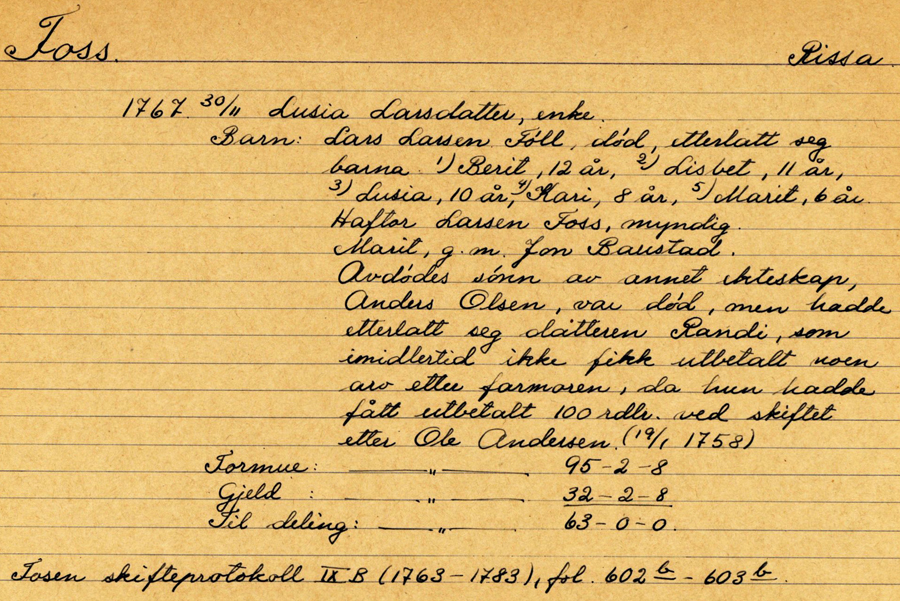 Foss. Rissa.
1767. 30/11 Lusia Larsdatter, enke.
Barn: Lars Larsen Föll, död, etterlatt seg
barna 1) Berit, 12 år, 2) Lisbet, 11 år,
3) Lusia, 10 år, 4) Kari, 8 år, 5) Marit, 6 år.
Haftor Larsen Foss, myndig.
Marit, g. m. Jon Baustad.
Avdödes sönn av annet ekteskap,
Anders Olsen, var död, men hadde
etterlatt seg datteren Randi, som
imidlertid ikke fikk utbetalt noen
arv etter farmoren, da hun hadde
fått utbetalt 100 rdlr. ved skiftet
etter Ole Andersen. (19/1 1758)
Formue: —— " —— 95 - 2 - 8
Gjeld : —— " —— 32 - 2 - 8
Til deling: —— " —— 63 - 0 - 0.
Fosen skifteprotokoll IX B (1763 - 1783), fol. 602 b - 603 b.